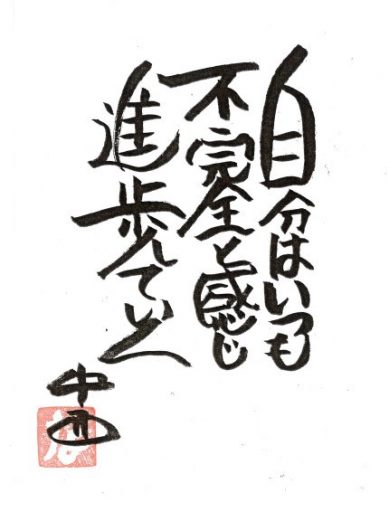 自分はいつも
不完全と感じ
進歩していく
中西